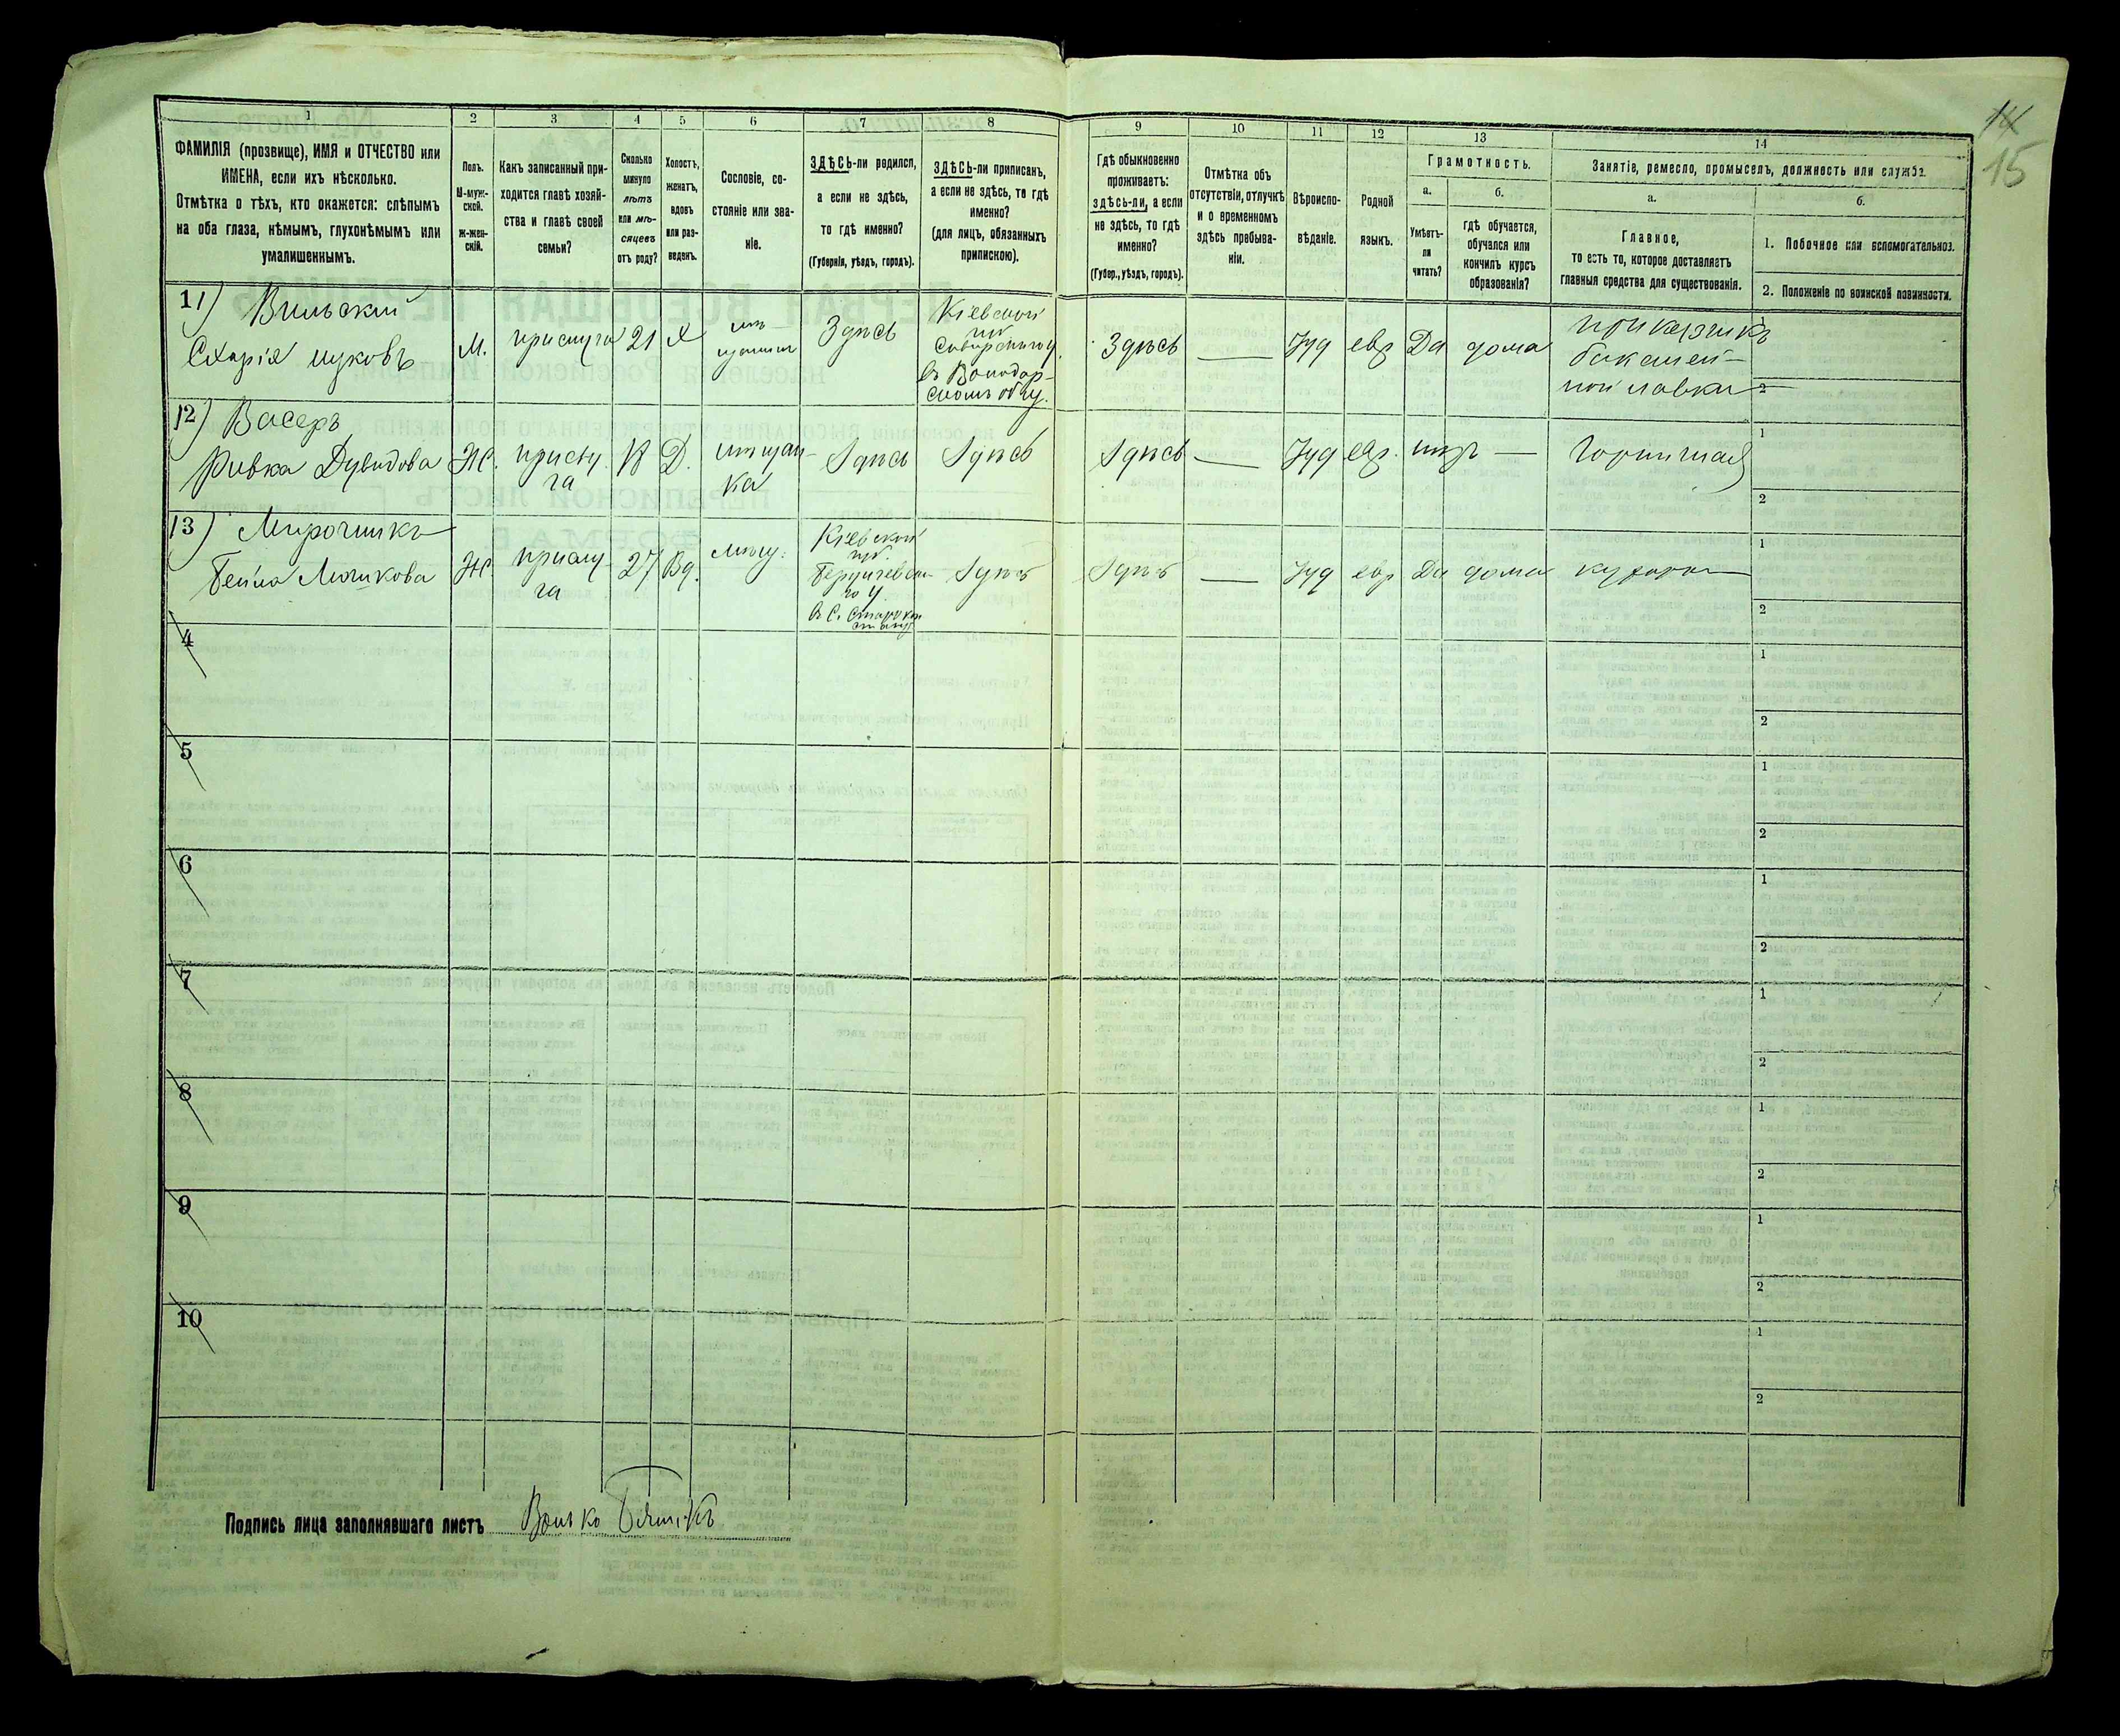 14
15
1
2
3
4
5
6
7
8
9
10
11
12
13
14
ФАМИЛІЯ (прозвище), ИМЯ и ОТЧЕСТВО или
ИМЕНА, если ихъ нѣсколько.
Отмѣтка о тѣхъ, кто окажется: слѣпымъ
на оба глаза, нѣмымъ, глухонѣмымъ или
умалишеннымъ.
Полъ.
М-муж-
ской.
Ж-жен-
скій.
Какъ записанный при-
ходится главѣ хозяй-
ства и главѣ своей
семьи?
Сколько
минуло
лѣтъ
или мѣ-
сяцевъ
отъ роду?
Холостъ,
женатъ,
вдовъ
или раз-
веденъ.
Сословіе, со-
стояніе или зва-
ніе.
ЗДѢСЬ-ли родился,
а если не здѣсь,
то гдѣ именно?
(Губернія, уѣздъ, городъ).
ЗДѢСЬ-ли приписанъ,
а если не здѣсь, то гдѣ
именно?
(для лицъ, обязанныхъ
припискою).
Гдѣ обыкновенно
проживаетъ:
здѣсь-ли, а если
не здѣсь, то гдѣ
именно?
(Губер., уѣздъ, городъ).
Отмѣтка объ
отсутствіи, отлучкѣ
и о временномъ
здѣсь пребыва-
ніи.
Вѣроиспо-
вѣданіе.
Родной
языкъ.
Грамотность.
а.
б.
Умѣетъ-
ли
читать?
гдѣ обучается,
обучался или
кончилъ курсъ
образованія?
Занятіе, ремесло, промыселъ, должность или служба.
а.
б.
Главное,
то есть то, которое доставляетъ
главныя средства для существованія.
1. Побочное или вспомогательное.
2. Положеніе по воинской повинности.
11) Вильскій
М.
прислуга
21
Х
мѣ-
щанинъ
Здѣсь
Кіевской
губ.
въ Володар-
скомъ общ.
Здѣсь
—
Іуд
евр
Да
дома
прикащикъ
бакалей-
ной лавки
1
2
12) Васеръ
Ривка Дувидова
Ж.
прислу
га
18
Д.
мѣщан-
ка
Здѣсь
Здѣсь
Здѣсь
—
Іуд
евр.
нѣтъ
—
Горничная
1
2
13) Мирочникъ
Бейла
Ж.
прислу
га
27
Вд.
мѣщ.
Кіевской
губ.
Бердичевска-
го у.
Здѣсь
Здѣсь
—
Іуд
евр
Да
дома
кухарка
1
2
4
1
2
5
1
2
6
1
2
7
1
2
8
1
2
9
1
2
10
1
2
Подпись лица заполнявшаго листъ